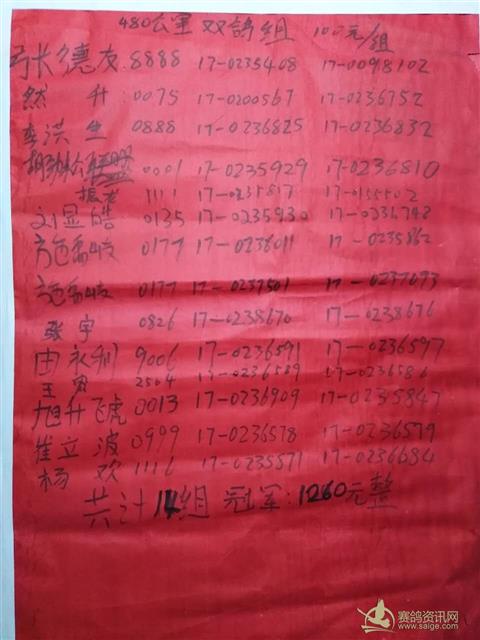 480公里 双鸽组 100元/组
张德友 8888 17-0235408 17-0098102
然升 0075 17-0200567 17-0236752
李洪生 0888 17-0236825 17-0236832
0001 17-0235929 17-0236810
振龙 1111 17-0235817 17-0155502
刘显皓 0135 17-0235930 17-0236748
0177 17-0238011 17-0235862
0177 17-0237501 17-0237093
张宇 0826 17-0238670 17-0238676
田永利 9006 17-0236591 17-0236597
王寅 2504 17-0236589 17-0236586
旭升飞虎 0013 17-0236909 17-0235847
崔立波 0999 17-0236578 17-0236579
杨欢 1116 17-0235571 17-0236684
共计14组 冠军:1260元整
赛鸽资讯网
www.saige.com